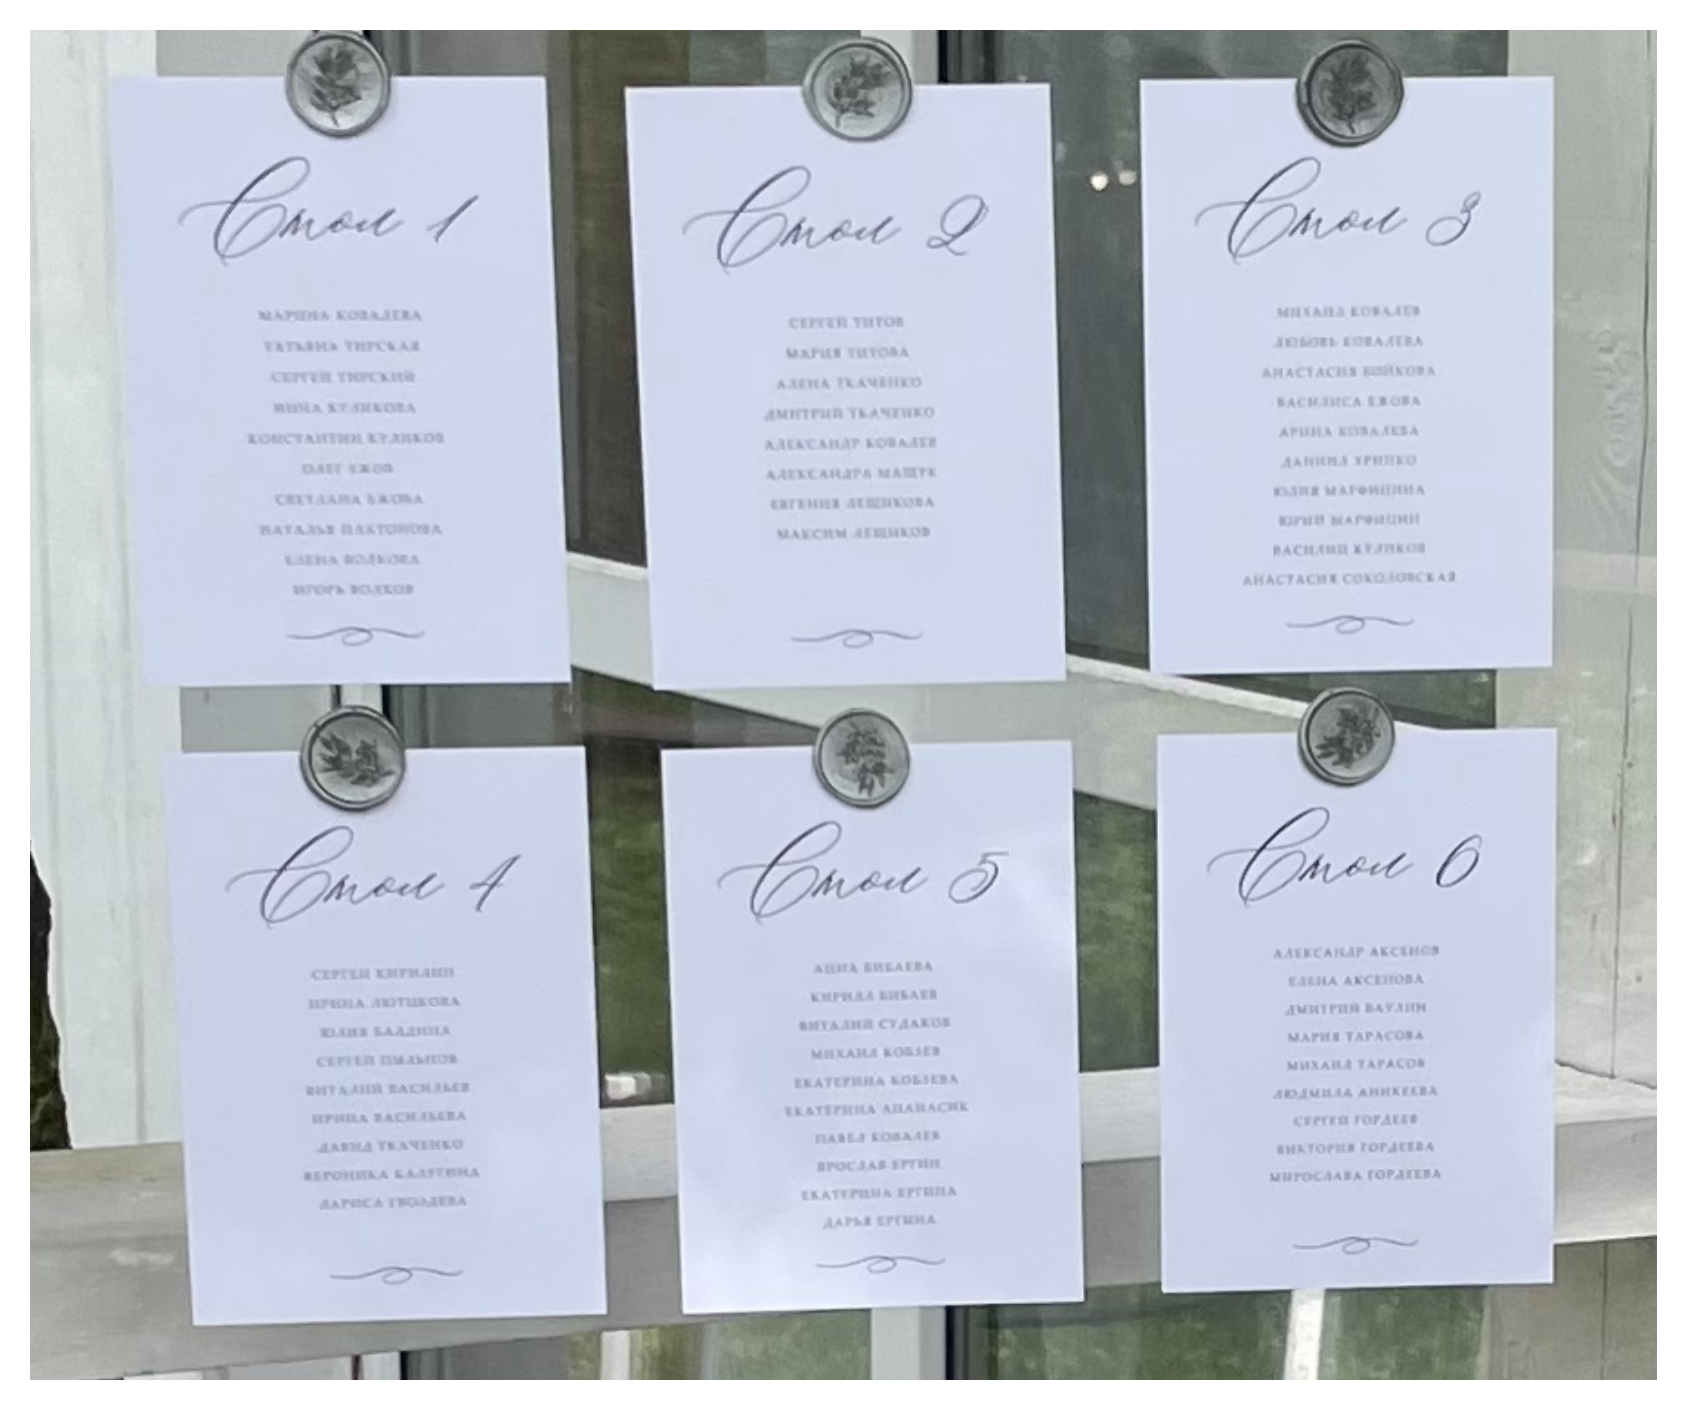 Стол 1
МАРИНА КОВАЛЕВА
ТАТЬЯНА ТИРСКАЯ
СЕРГЕЙ ТИРСКИЙ
ИННА КУЛИКОВА
КОНСТАНТИН КУЛИКОВ
ОЛЕГ ЕЖОВ
СВЕТЛАНА ЕЖОВА
НАТАЛЬЯ ПАКТОНОВА
ЕЛЕНА ВОЛКОВА
ИГОРЬ ВОЛКОВ
Стол 2
СЕРГЕЙ ТИТОВ
МАРИЯ ТИТОВА
АЛЕНА ТКАЧЕНКО
ДМИТРИЙ ТКАЧЕНКО
АЛЕКСАНДР КОВАЛЕВ
АЛЕКСАНДРА МАЩУК
ЕВГЕНИЯ ЛЕЩИКОВА
МАКСИМ ЛЕЩИКОВ
Стол 3
МИХАИЛ КОВАЛЕВ
ЛЮБОВЬ КОВАЛЕВА
АНАСТАСИЯ БОЙКОВА
ВАСИЛИСА ЕЖОВА
АРИНА КОВАЛЕВА
ДАНИИЛ ХРИПКО
ЮЛИЯ МАРФИЦИНА
ЮРИЙ МАРФИЦИН
ВАСИЛИЙ КУЛИКОВ
АНАСТАСИЯ СОКОЛОВСКАЯ
Стол 4
СЕРГЕЙ КИРИЛИН
ИРИНА ЛЮТИКОВА
ЮЛИЯ БАЛДИНА
СЕРГЕЙ
ВИТАЛИЙ ВАСИЛЬЕВ
ИРИНА ВАСИЛЬЕВА
ДАВИД ТКАЧЕНКО
ВЕРОНИКА КАЛУГИНА
ЛАРИСА ГВОЗДЕВА
Стол 5
АННА БИБАЕВА
КИРИЛЛ БИБАЕВ
ВИТАЛИЙ СУДАКОВ
МИХАИЛ КОБЗЕВ
ЕКАТЕРИНА КОБЗЕВА
ЕКАТЕРИНА АПАНАСИК
ПАВЕЛ КОВАЛЕВ
ЯРОСЛАВ ЕРГИН
ЕКАТЕРИНА ЕРГИНА
ДАРЬЯ ЕРГИНА
Стол 6
АЛЕКСАНДР АКСЕНОВ
ЕЛЕНА АКСЕНОВА
ДМИТРИЙ ВАУЛИН
МАРИЯ ТАРАСОВА
МИХАИЛ ТАРАСОВ
ЛЮДМИЛА АНИКЕЕВА
СЕРГЕЙ ГОРДЕЕВ
ВИКТОРИЯ ГОРДЕЕВА
МИРОСЛАВА ГОРДЕЕВА